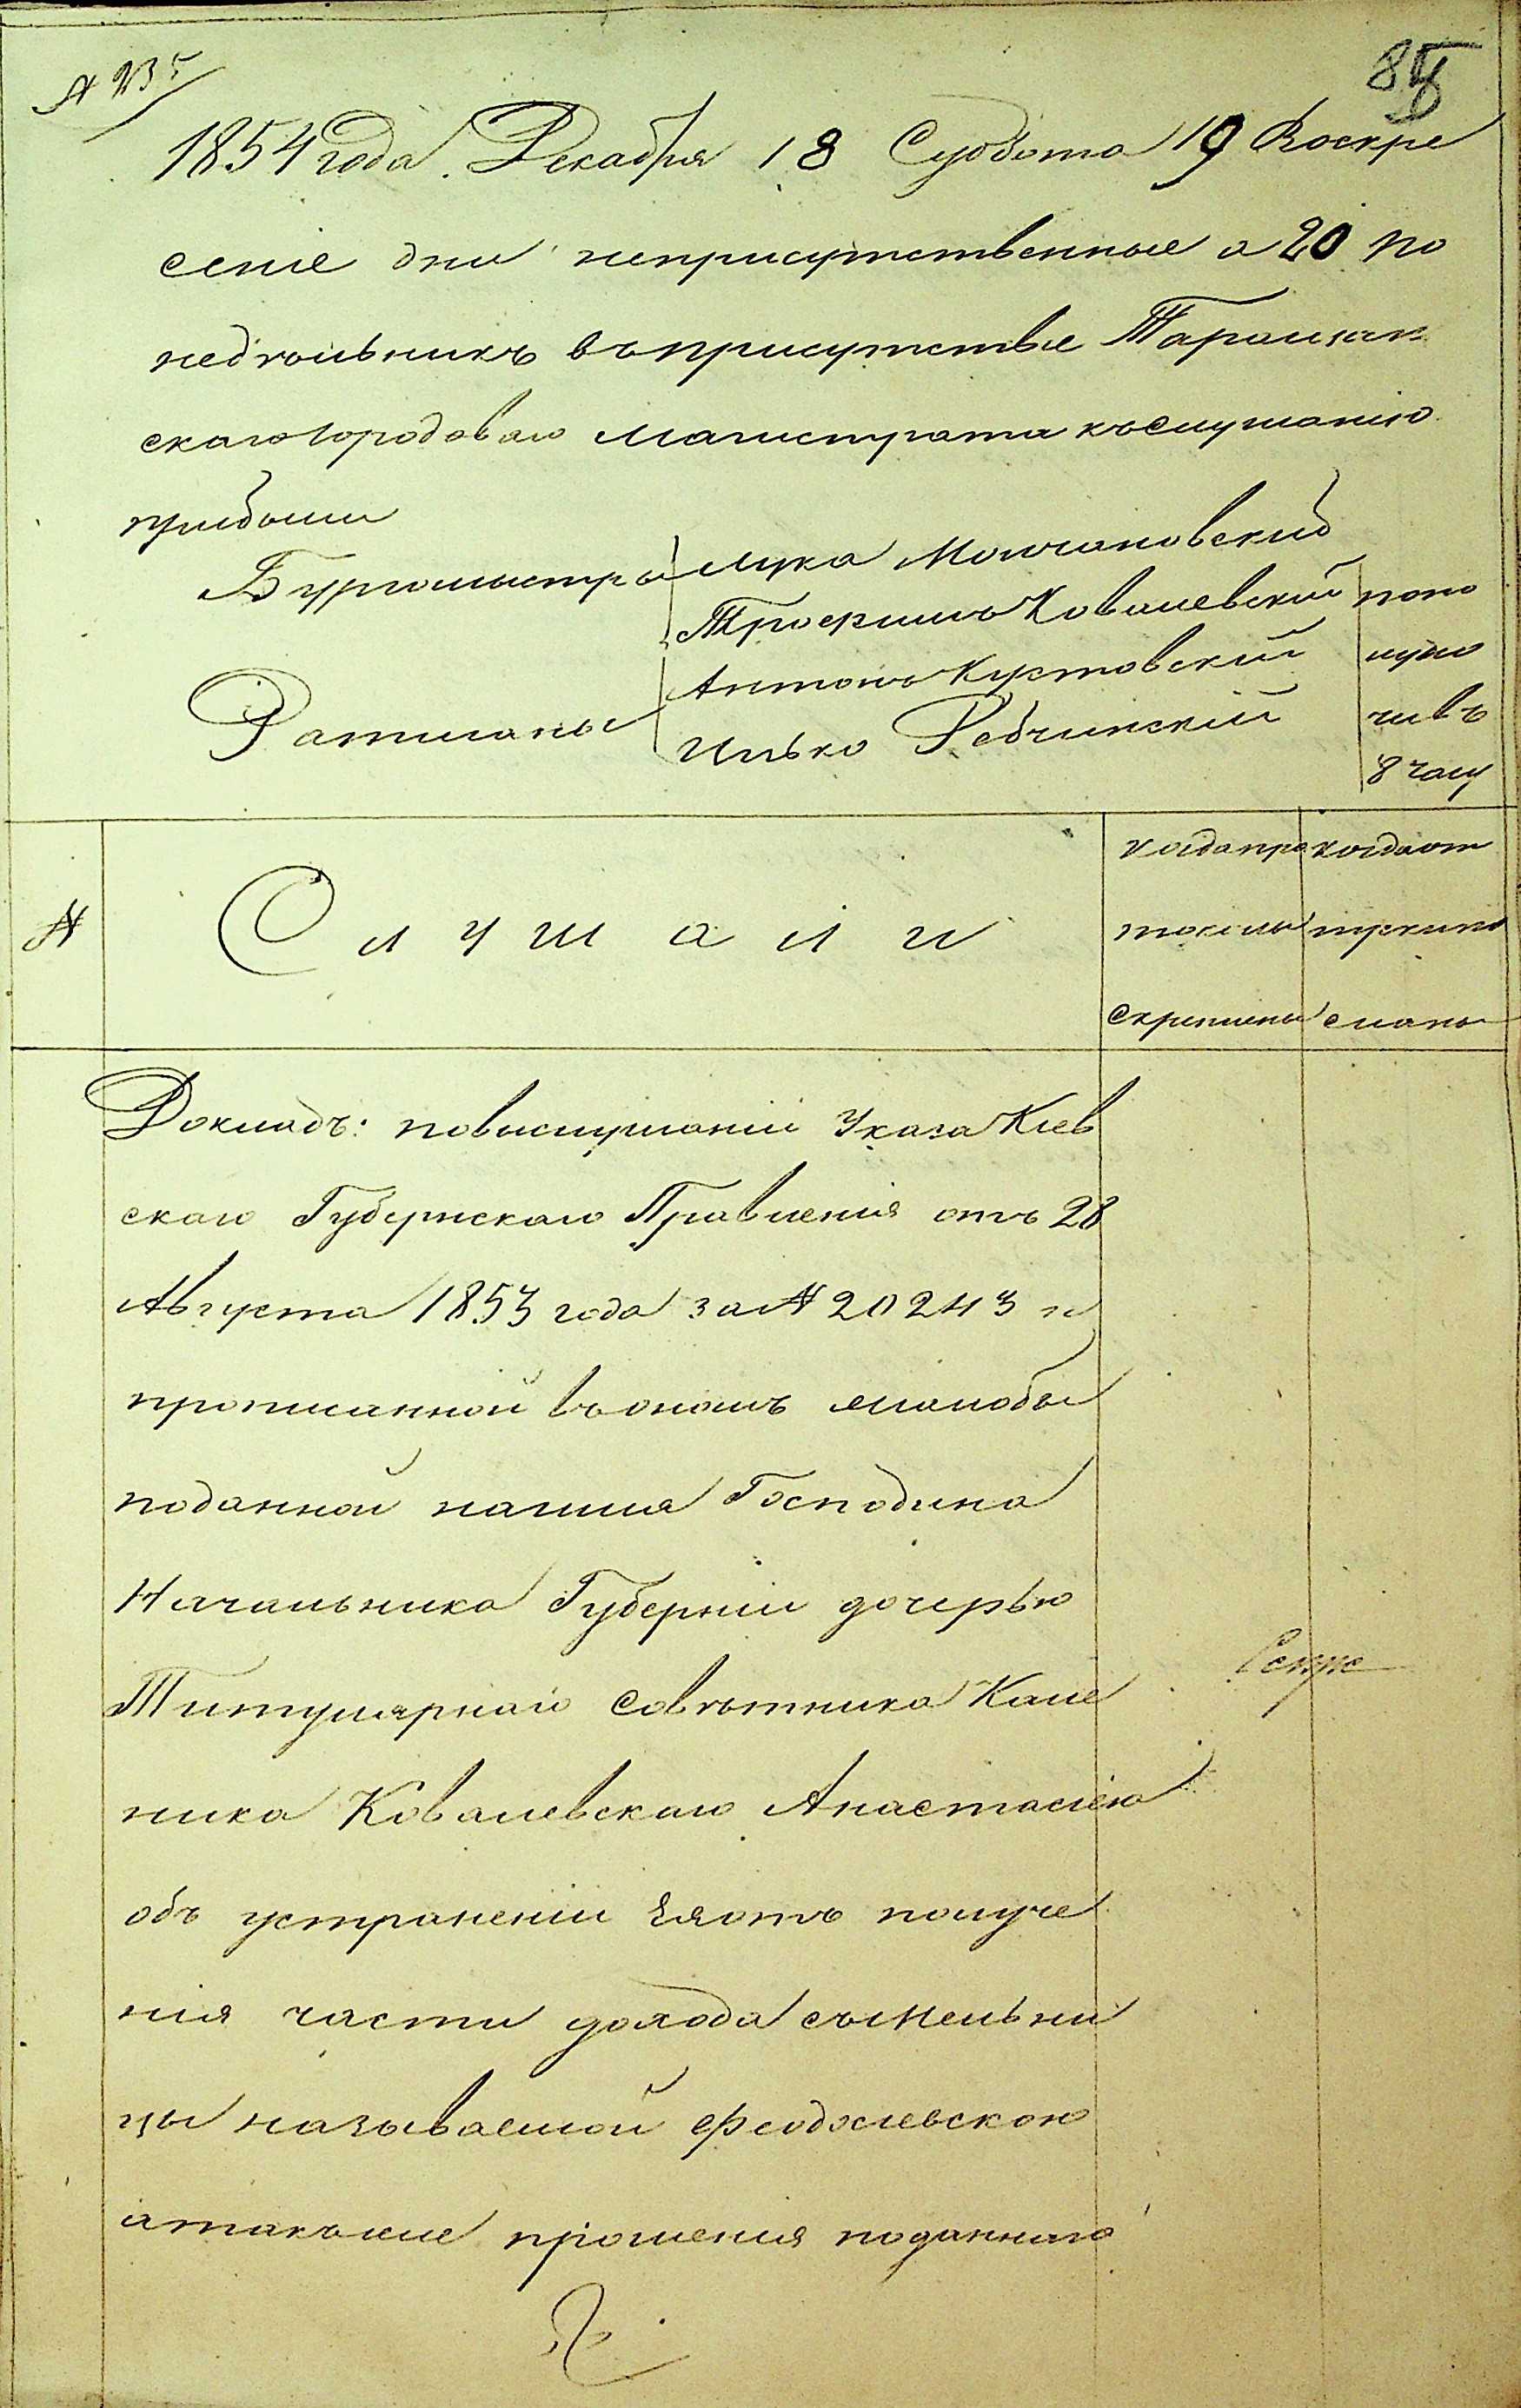 № 235
1854 года Декабря 18 Субота 19 Воскре
сеніе дни неприсутственные а 20 по
недѣльникъ въ присутствіе Таращан
скаго Городоваго Магистрата къ слушанію
прибыли
Бургомистры Лука Молчановский
Трофимъ Ковалевский попо
Антонъ Кустовский лудно
Ратманы Илько Ребчинскій чивъ
8 часу
когда про когда от
№ Слушали токолы пускно
скреплены сланы
Докладъ: по выслушаніи Указа Кіев
скаго Губернскаго Правленія отъ 28
Августа 1853 года за № 20243 и
прописанной въ ономъ жалобы
поданной на имя Господина
Начальника Губерніи дочерью
Титулярнаго Совѣтника Кале
ника Ковалевскаго Анастасіею
объ устраненіи Ея отъ получе
нія части дохода съ мельни
цы называемой Феодосіевскою
а такъ же прошенія поданнаго